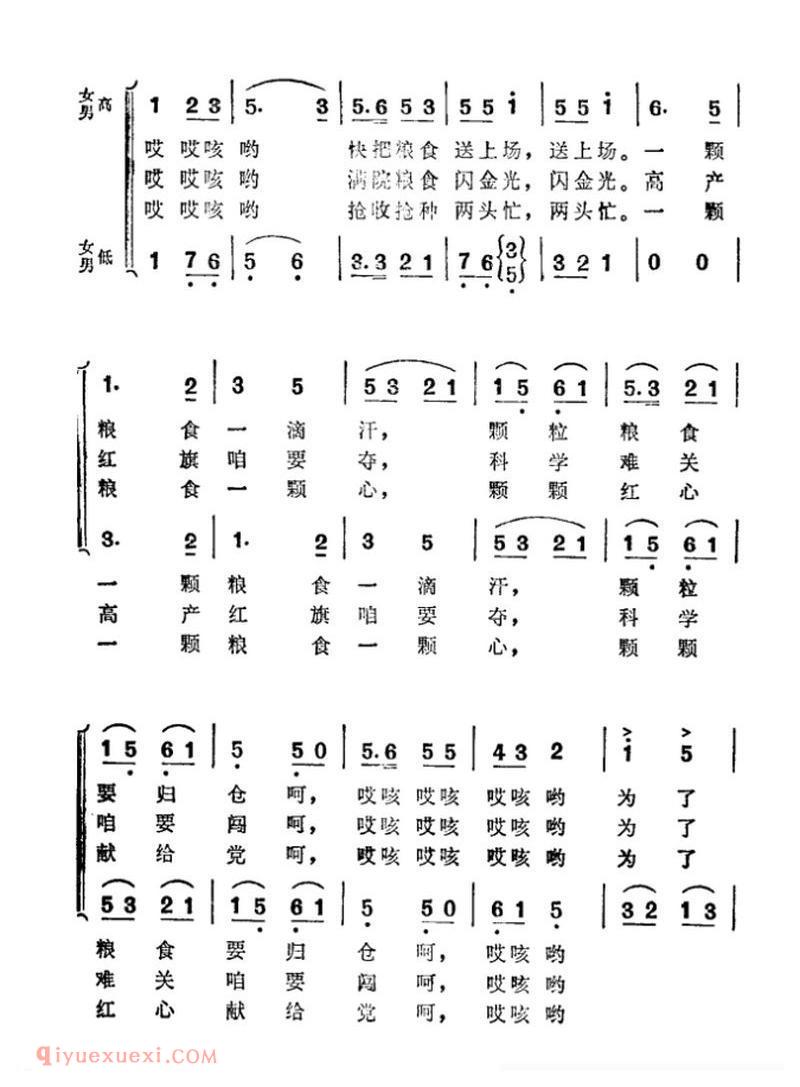 女男高 1 23 | 5. 3 | 5.6 5 3 | 5 5 i | 5 5 i | 6. 5 |
哎 哎咳 哟 快把粮食 送上场，送上场。一 颗
哎 哎咳 哟 满院粮食 闪金光，闪金光。高 产
哎 哎咳 哟 抢收抢种 两头忙，两头忙。一 颗
女男低 1 7 6 | 5 6 | 3.3 2 1 | 7 6 {3 5} | 3 2 1 | 0 0 |
1. 2 | 3 5 | 5 3 2 1 | 1 5 6 1 | 5.3 2 1 |
粮 食 一 滴 汗， 颗 粒 粮 食
红 旗 咱 要 夺， 科 学 难 关
粮 食 一 颗 心， 颗 颗 红 心
3. 2 | 1. 2 | 3 5 | 5 3 2 1 | 1 5 6 1 |
一 颗 粮 食 一 滴 汗， 颗 粒
高 产 红 旗 咱 要 夺， 科 学
一 颗 粮 食 一 颗 心， 颗 颗
1 5 6 1 | 5 5 0 | 5.6 5 5 | 4 3 2 | i 5 |
要 归 仓 呵， 哎咳 哎咳 哎咳 哟 为 了
咱 要 闯 呵， 哎咳 哎咳 哎咳 哟 为 了
献 给 党 呵， 哎咳 哎咳 哎咳 哟 为 了
5 3 2 1 | 1 5 6 1 | 5 5 0 | 6 1 5 | 3 2 1 3 |
粮 食 要 归 仓 呵， 哎咳 哟
难 关 咱 要 闯 呵， 哎咳 哟
红 心 献 给 党 呵， 哎咳 哟
qiyuexuexi.com